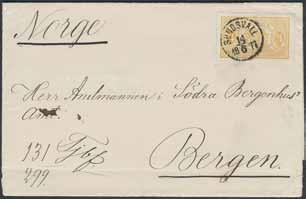 Norge
SUNDSVALL
14
6
Herr Amtmannen i Södra Bergenhus
Amt.
131
299.
Bergen.